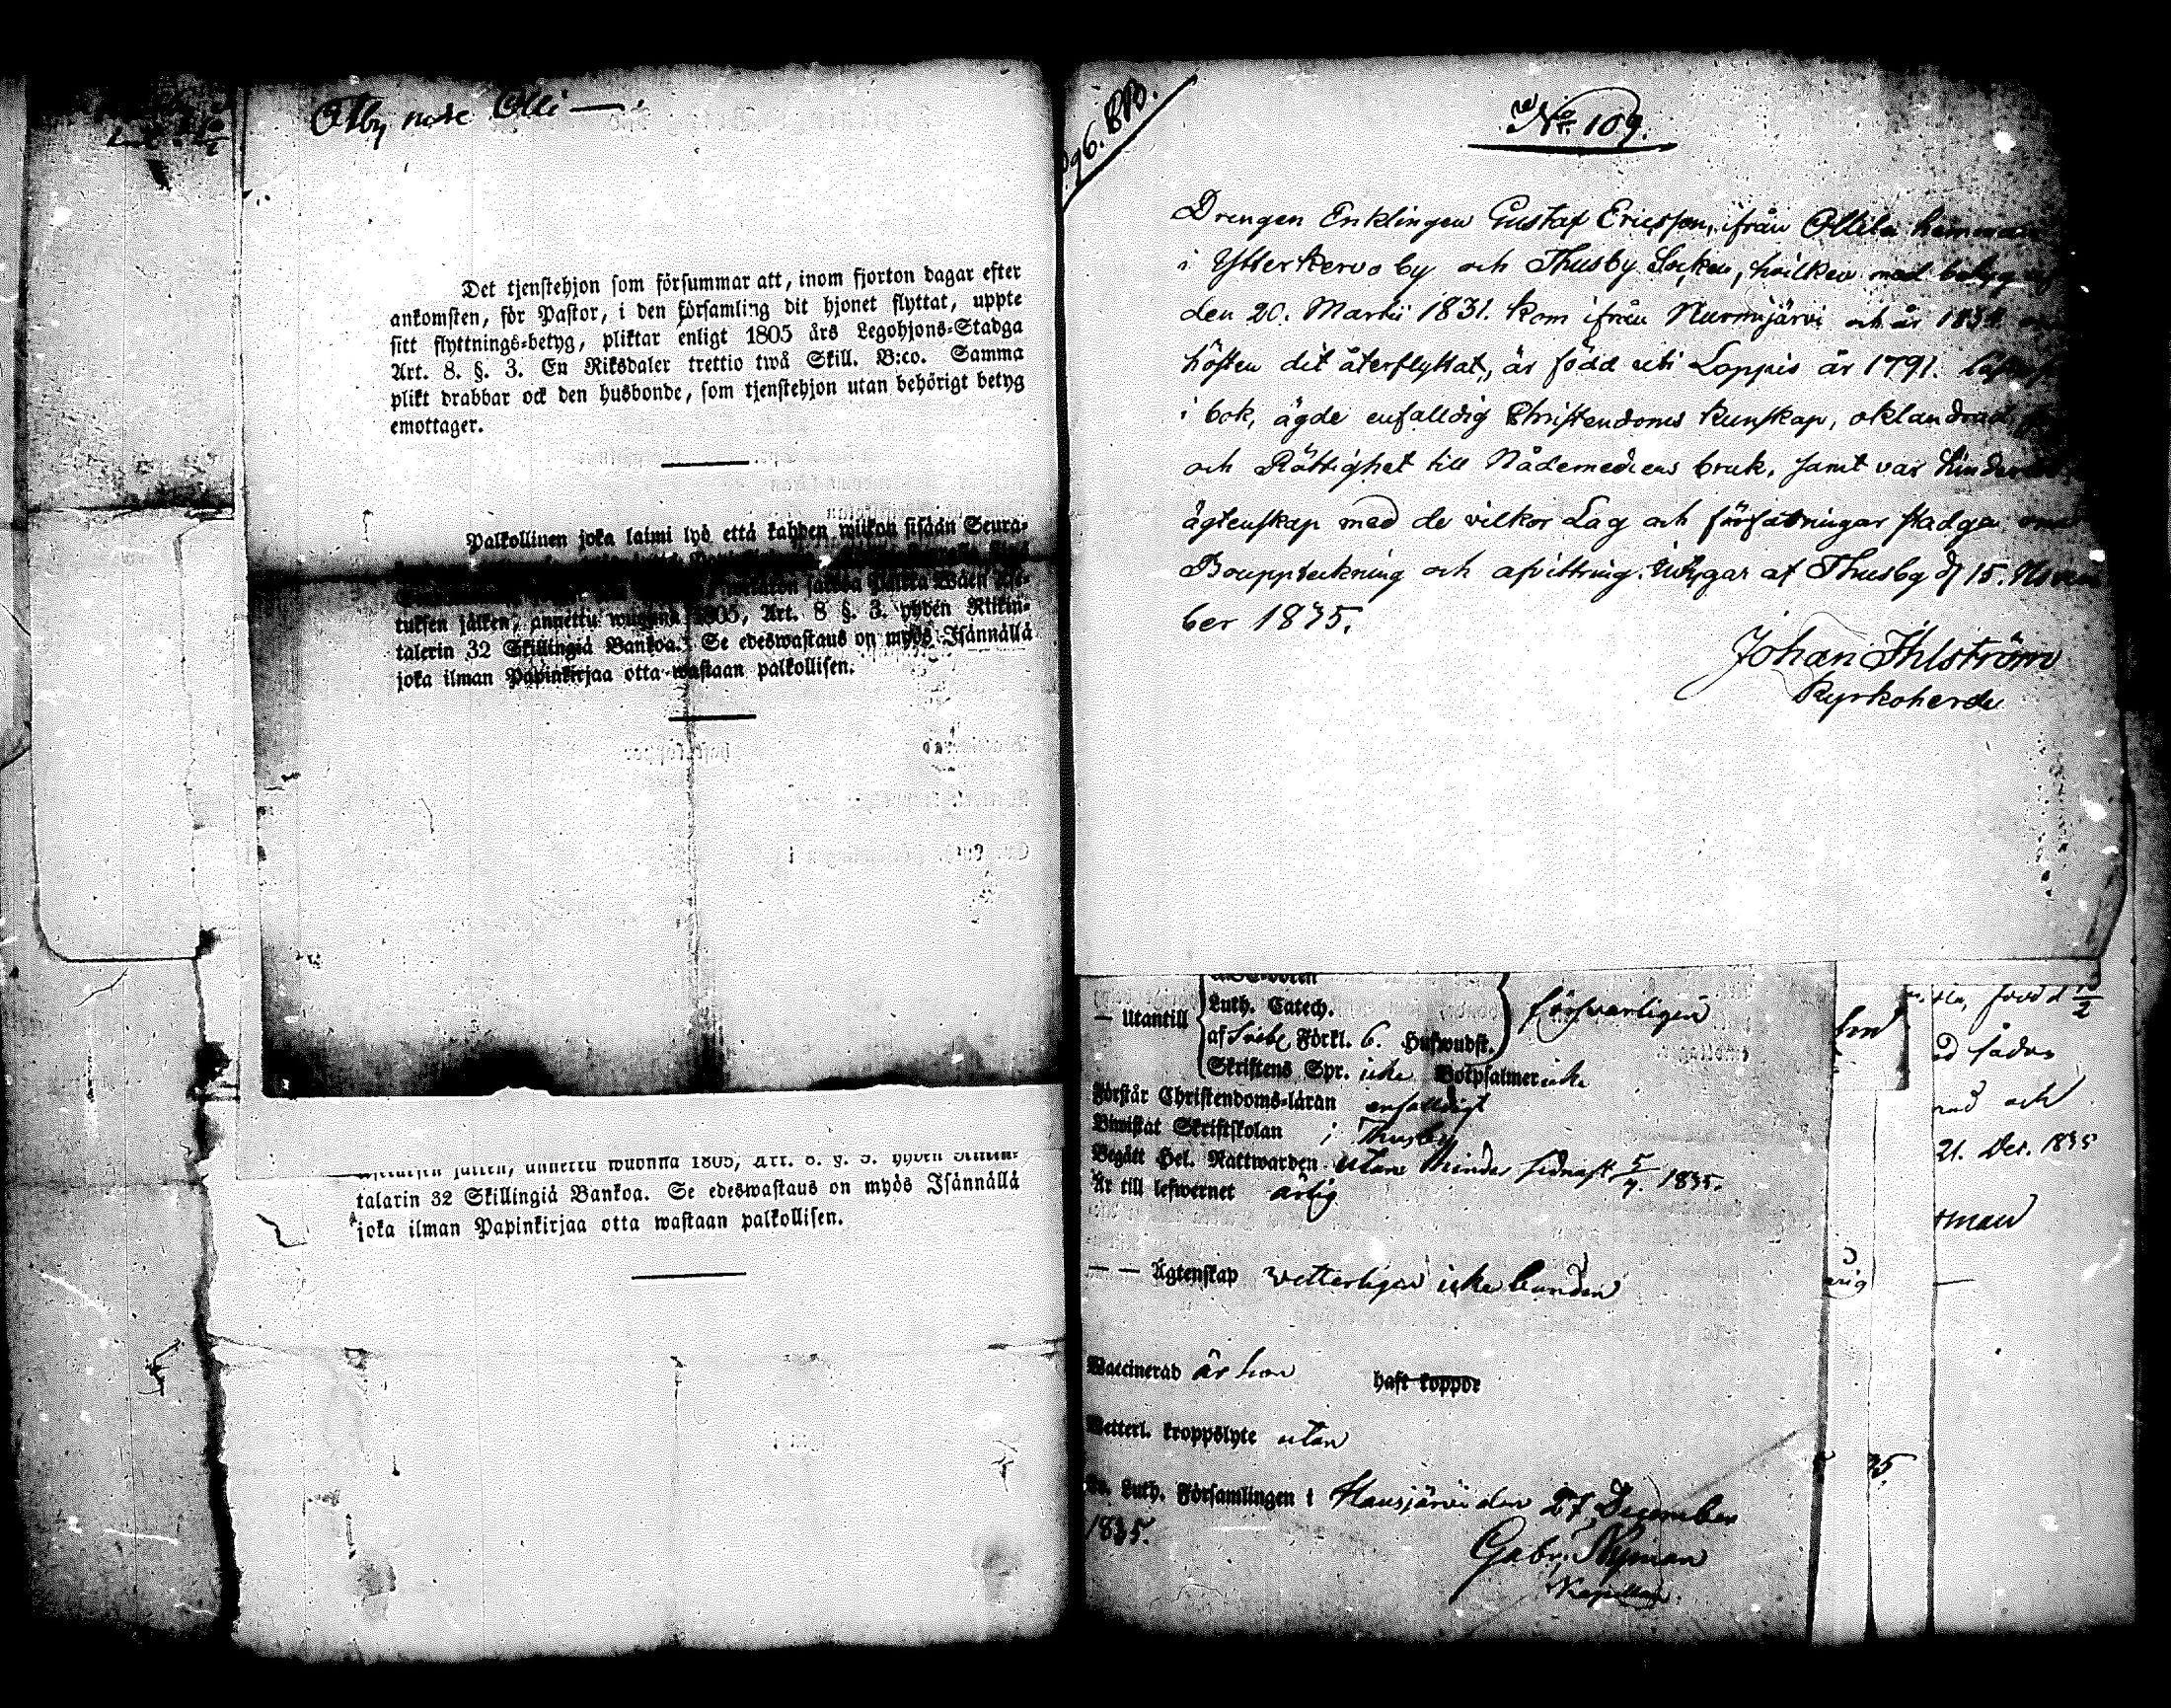 Otby nere Olli —
Det tjenstehjon som försummar att, inom fjorton dagar efter
ankomsten, för Pastor, i den församling dit hjonet flyttat, uppte
sitt flyttnings-betyg, pliktar enligt 1805 års Legohjons-Stadga
Art. 8. §. 3. En Riksdaler trettio twå Skill. B:co. Samma
plikt drabbar ock den husbonde, som tjenstehjon utan behörigt betyg
emottager.
Palkollinen joka laimi lyö että kahden wiikon sisään Seura-
tuksen jälken, annettu wuonna 1805, Art. 8 §. 3. yhden Rikin-
talerin 32 Skillingiä Bankoa. Se edeswastaus on myös Isännällä
joka ilman Papinkirjaa otta wastaan palkollisen.
jälken, annettu wuonna 1805, Art. 8. §. 3. yhden
talarin 32 Skillingiä Bankoa. Se edeswastaus on myös Isännällä
joka ilman Papinkirjaa otta wastaan palkollisen.
96. BB.
No 109.
Drengen Enklingen Gustaf Ericsson, ifrån Ollila hemman
i Ytterkervo by och Thusby Socken, hvilken med betyg af
den 20. Martii 1831. kom ifrån Nurmijärvi och år 1834 om
hösten dit återflyttat, är född uti Loppis år 1791.
i bok, ägde enfalldig Christendoms kunskap, oklandrad
och Rättighet till Nådemedlens bruk, samt var hinders
ägtenskap med de vilkor Lag och författningar stadga om
Bouppteckning och afvittring. Utgar af Thusby d 15. Novem
ber 1835.
Johan Ihlström
Kyrkoherde
— Utantill
Luth. Catech.
af Sveb. Förkl. 6. Hufwudst.
Skriftens Spr. icke Botpsalmer icke
försvarligen
Förstår Christendoms-läran enfalldigt
Biwistat Skriftskolan i Thusby
Begått Hel. Nattwarden utan hinder sednast 5/7. 1835.
Är till lefwernet ärlig
— — Ägtenskap vetterligen icke bunden
Waccinerad är hon haft koppor
Wetterl. kroppslyte utan
Ev. Luth. Församlingen i Hausjärvi den 27 December
1835.
Gabr. Nyman
Kapellan
född 1/2
och
21. Dec. 1835